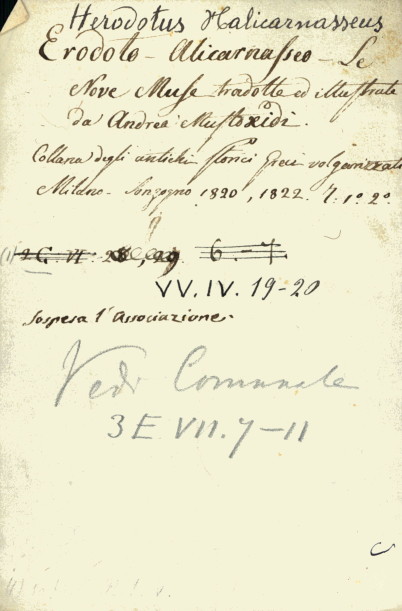 Herodotus Halicarnasseus
Erodoto - Alicarnasseo - Le
Nove Muse tradotte ed illustrate
da Andrea Mustoxidi.
Collana degli antichi storici Greci volgarizzati
Milano - Sonzogno 1820, 1822. T. 1.° 2.°
6. - 7.
VV. IV. 19-20
Sospesa l'Associazione.
Vedi Comunale
3 E VII. 7-11